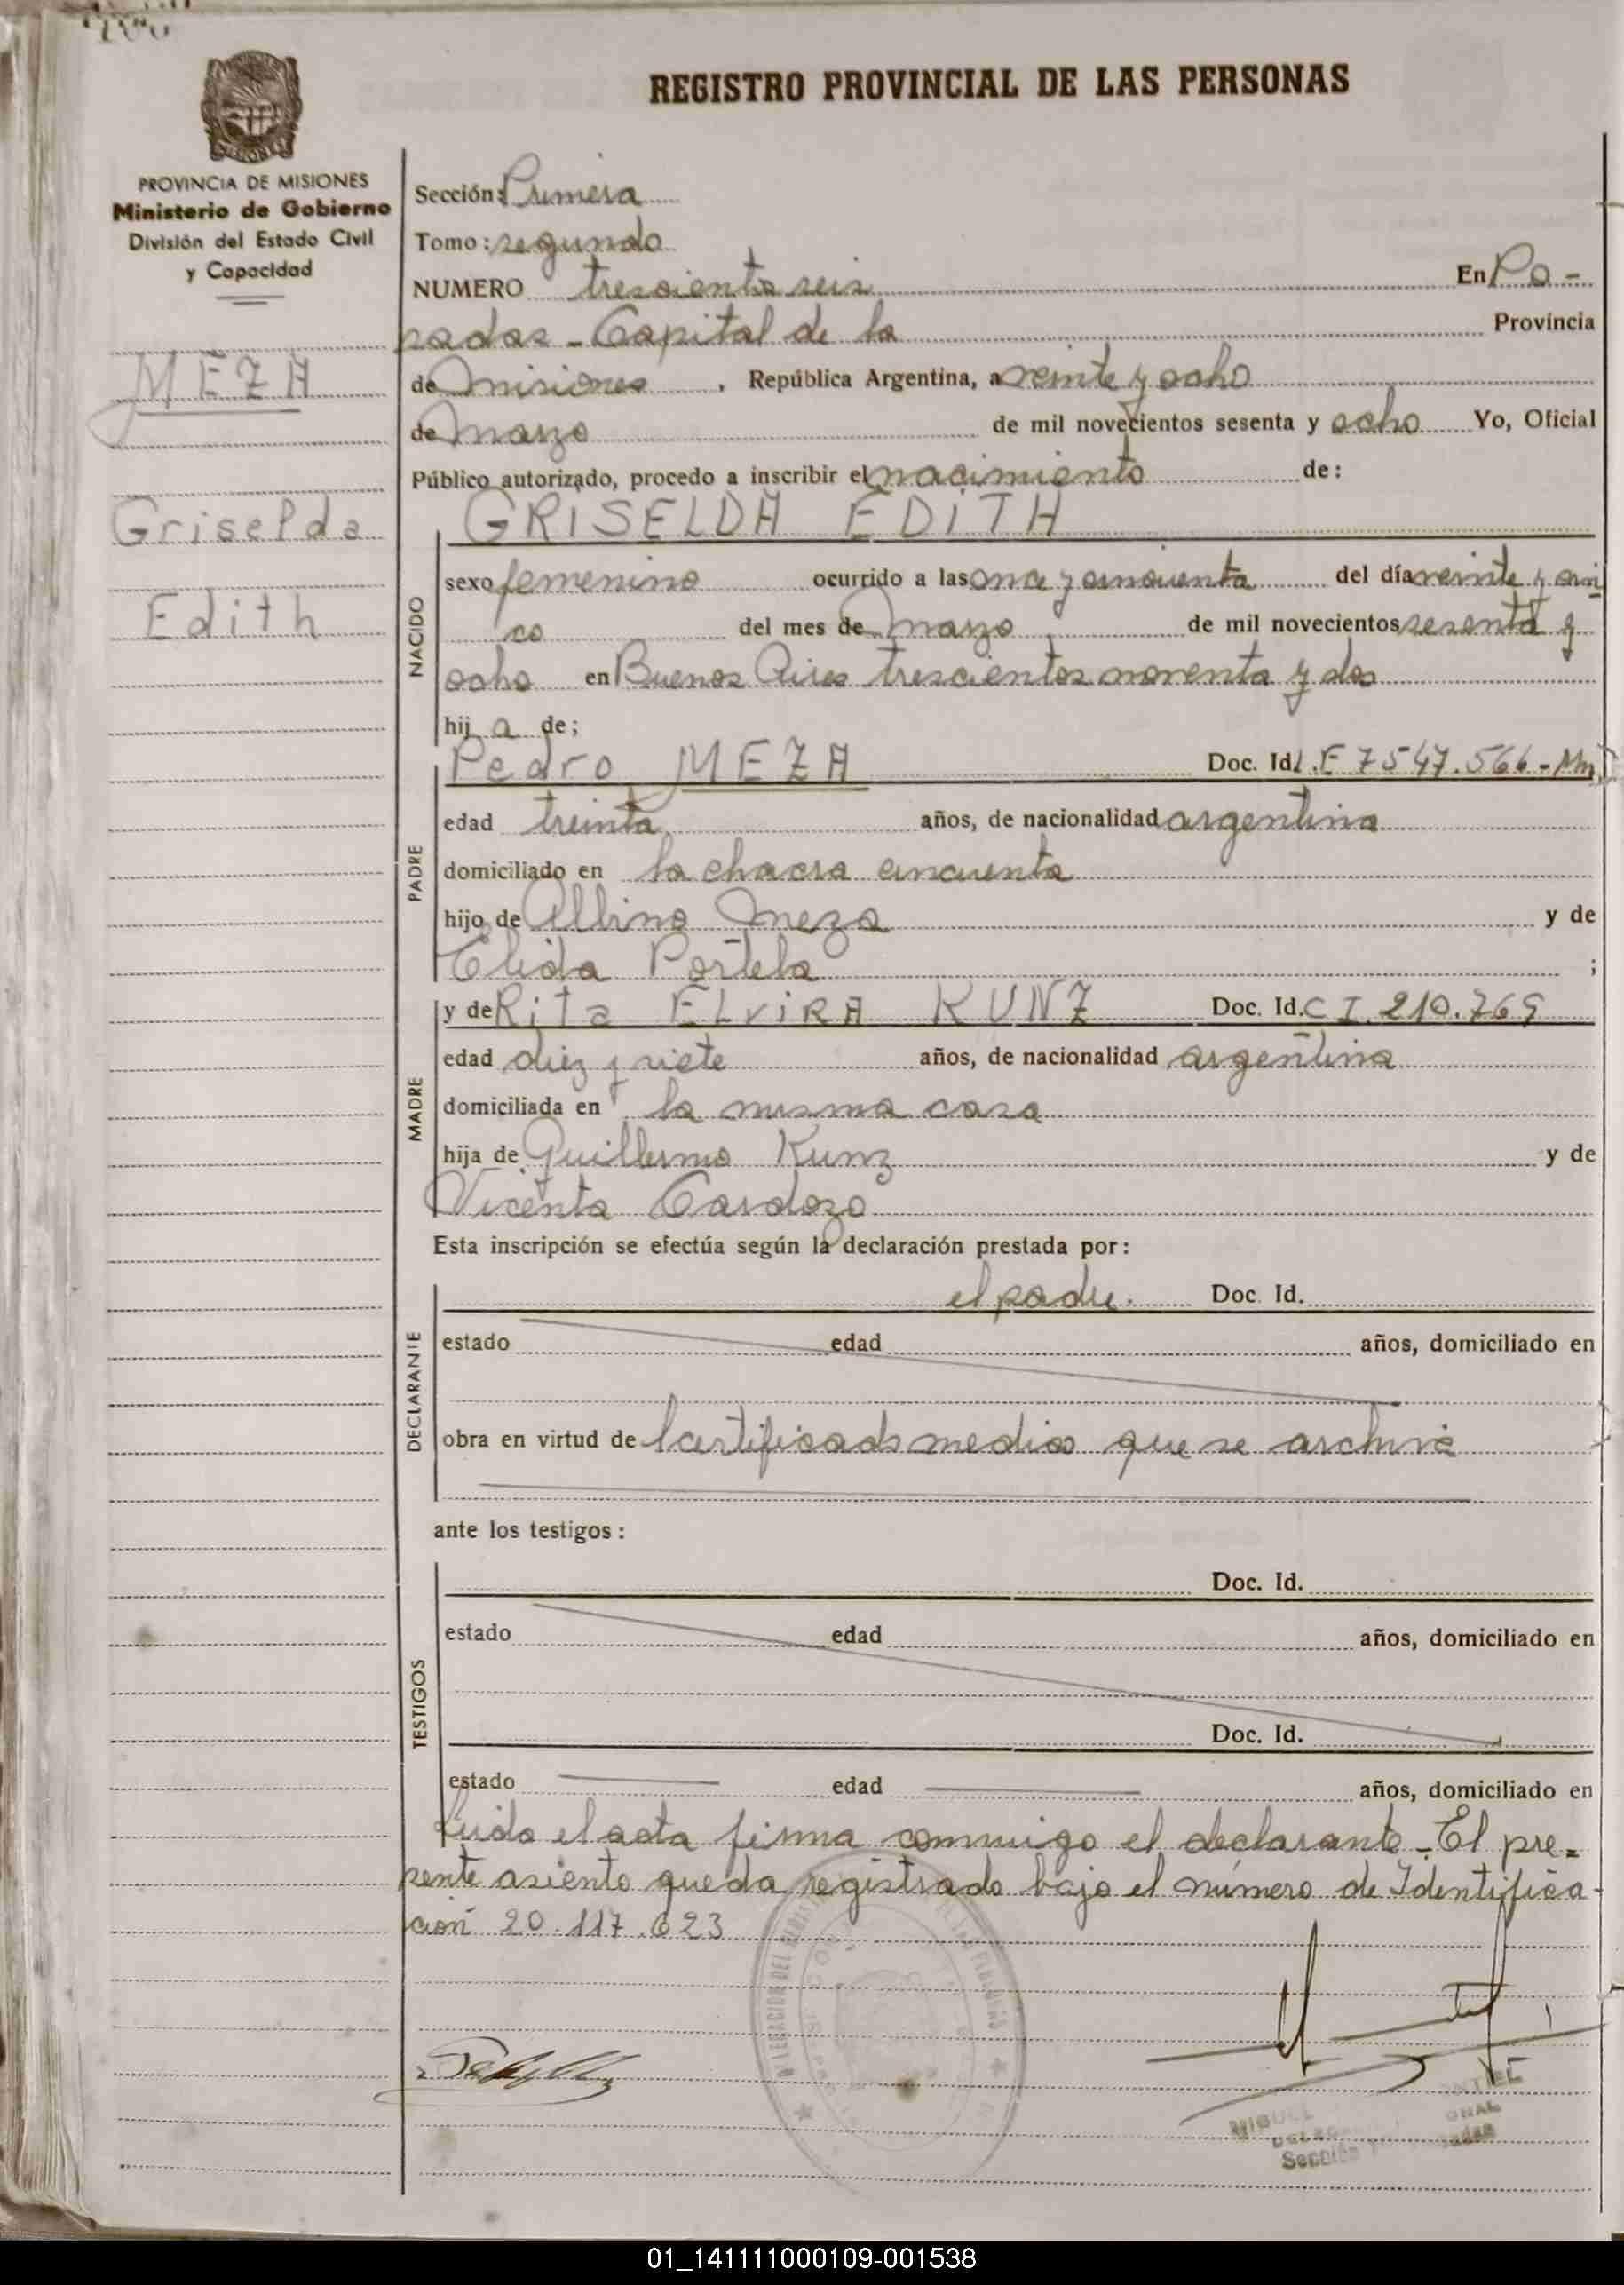 REGISTRO PROVINCIAL DE LAS PERSONAS
PROVINCIA DE MISIONES
Ministerio de Gobierno
División del Estado Civil
y Capacidad
MEZA
Griselda
Edith
Sección: Primera
Tomo: segundo
NUMERO trescientos seis En Po-
sadas - Capital de la Provincia
de Misiones, República Argentina, a veinte y ocho
de Marzo de mil novecientos sesenta y ocho Yo, Oficial
Público autorizado, procedo a inscribir el nacimiento de:
GRISELDA EDITH
NACIDO
sexo femenino ocurrido a las once y cincuenta del día veinte y cin
co del mes de Marzo de mil novecientos sesenta y
ocho en Buenos Aires trescientos noventa y dos
hij a de;
Pedro MEZA Doc. Id. L.E 7547.566 - Mm.
PADRE
edad treinta años, de nacionalidad argentina
domiciliado en la chacra cincuenta
hijo de Albino Meza y de
Elida Portela ;
y de Rita ELVIRA KUNZ Doc. Id. C I. 210.769
MADRE
edad diez y siete años, de nacionalidad argentina
domiciliada en la misma casa
hija de Guillermo Kunz y de
Vicenta Cardozo
Esta inscripción se efectúa según la declaración prestada por:
DECLARANTE
el padre. Doc. Id.
estado edad años, domiciliado en
obra en virtud de l certificado medico que se archiva
ante los testigos:
TESTIGOS
Doc. Id.
estado edad años, domiciliado en
Doc. Id.
estado edad años, domiciliado en
Leida el acta firma conmigo el declarante - El pre=
sente asiento queda registrado bajo el número de Identifica-
ción 20.117.623
MIGUEL
Sección
01_141111000109-001538